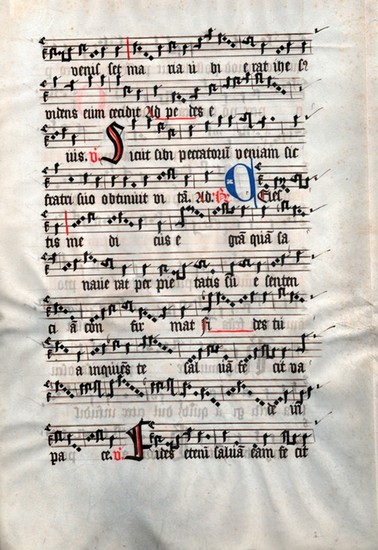 venis set ma ria u di e rat ihe sū
videns eum cecidit Ad pe des e
ius. v. Sicut sibi peccatorum veniam sic
fratri suo obtinuit vi tā. Ad. Celes
tis me di cus e grā quā sa
naue rat per pie tatis su e senten
ci ā con fir mat Fi des tu
a inquiēs te saluā fe cit va
de in
pa ce. v. Fides etenī saluā eam fe cit